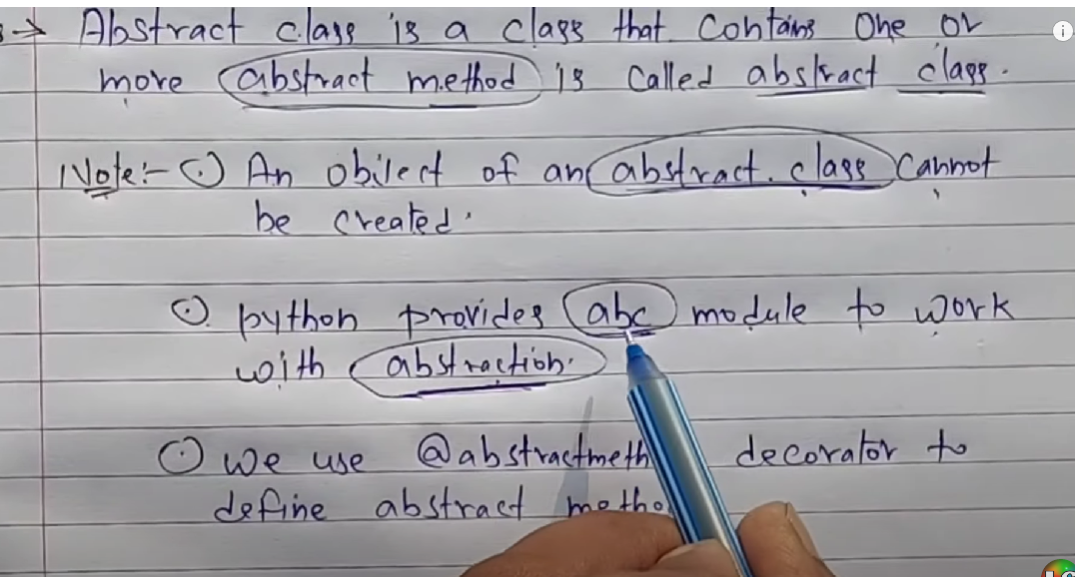 → Abstract class is a class that contains one or
more abstract method is called abstract class.
Note:- ⊙ An object of an abstract class cannot
be created.
⊙ python provides abc module to work
with abstraction.
⊙ we use @abstractmeth decorator to
define abstract metho